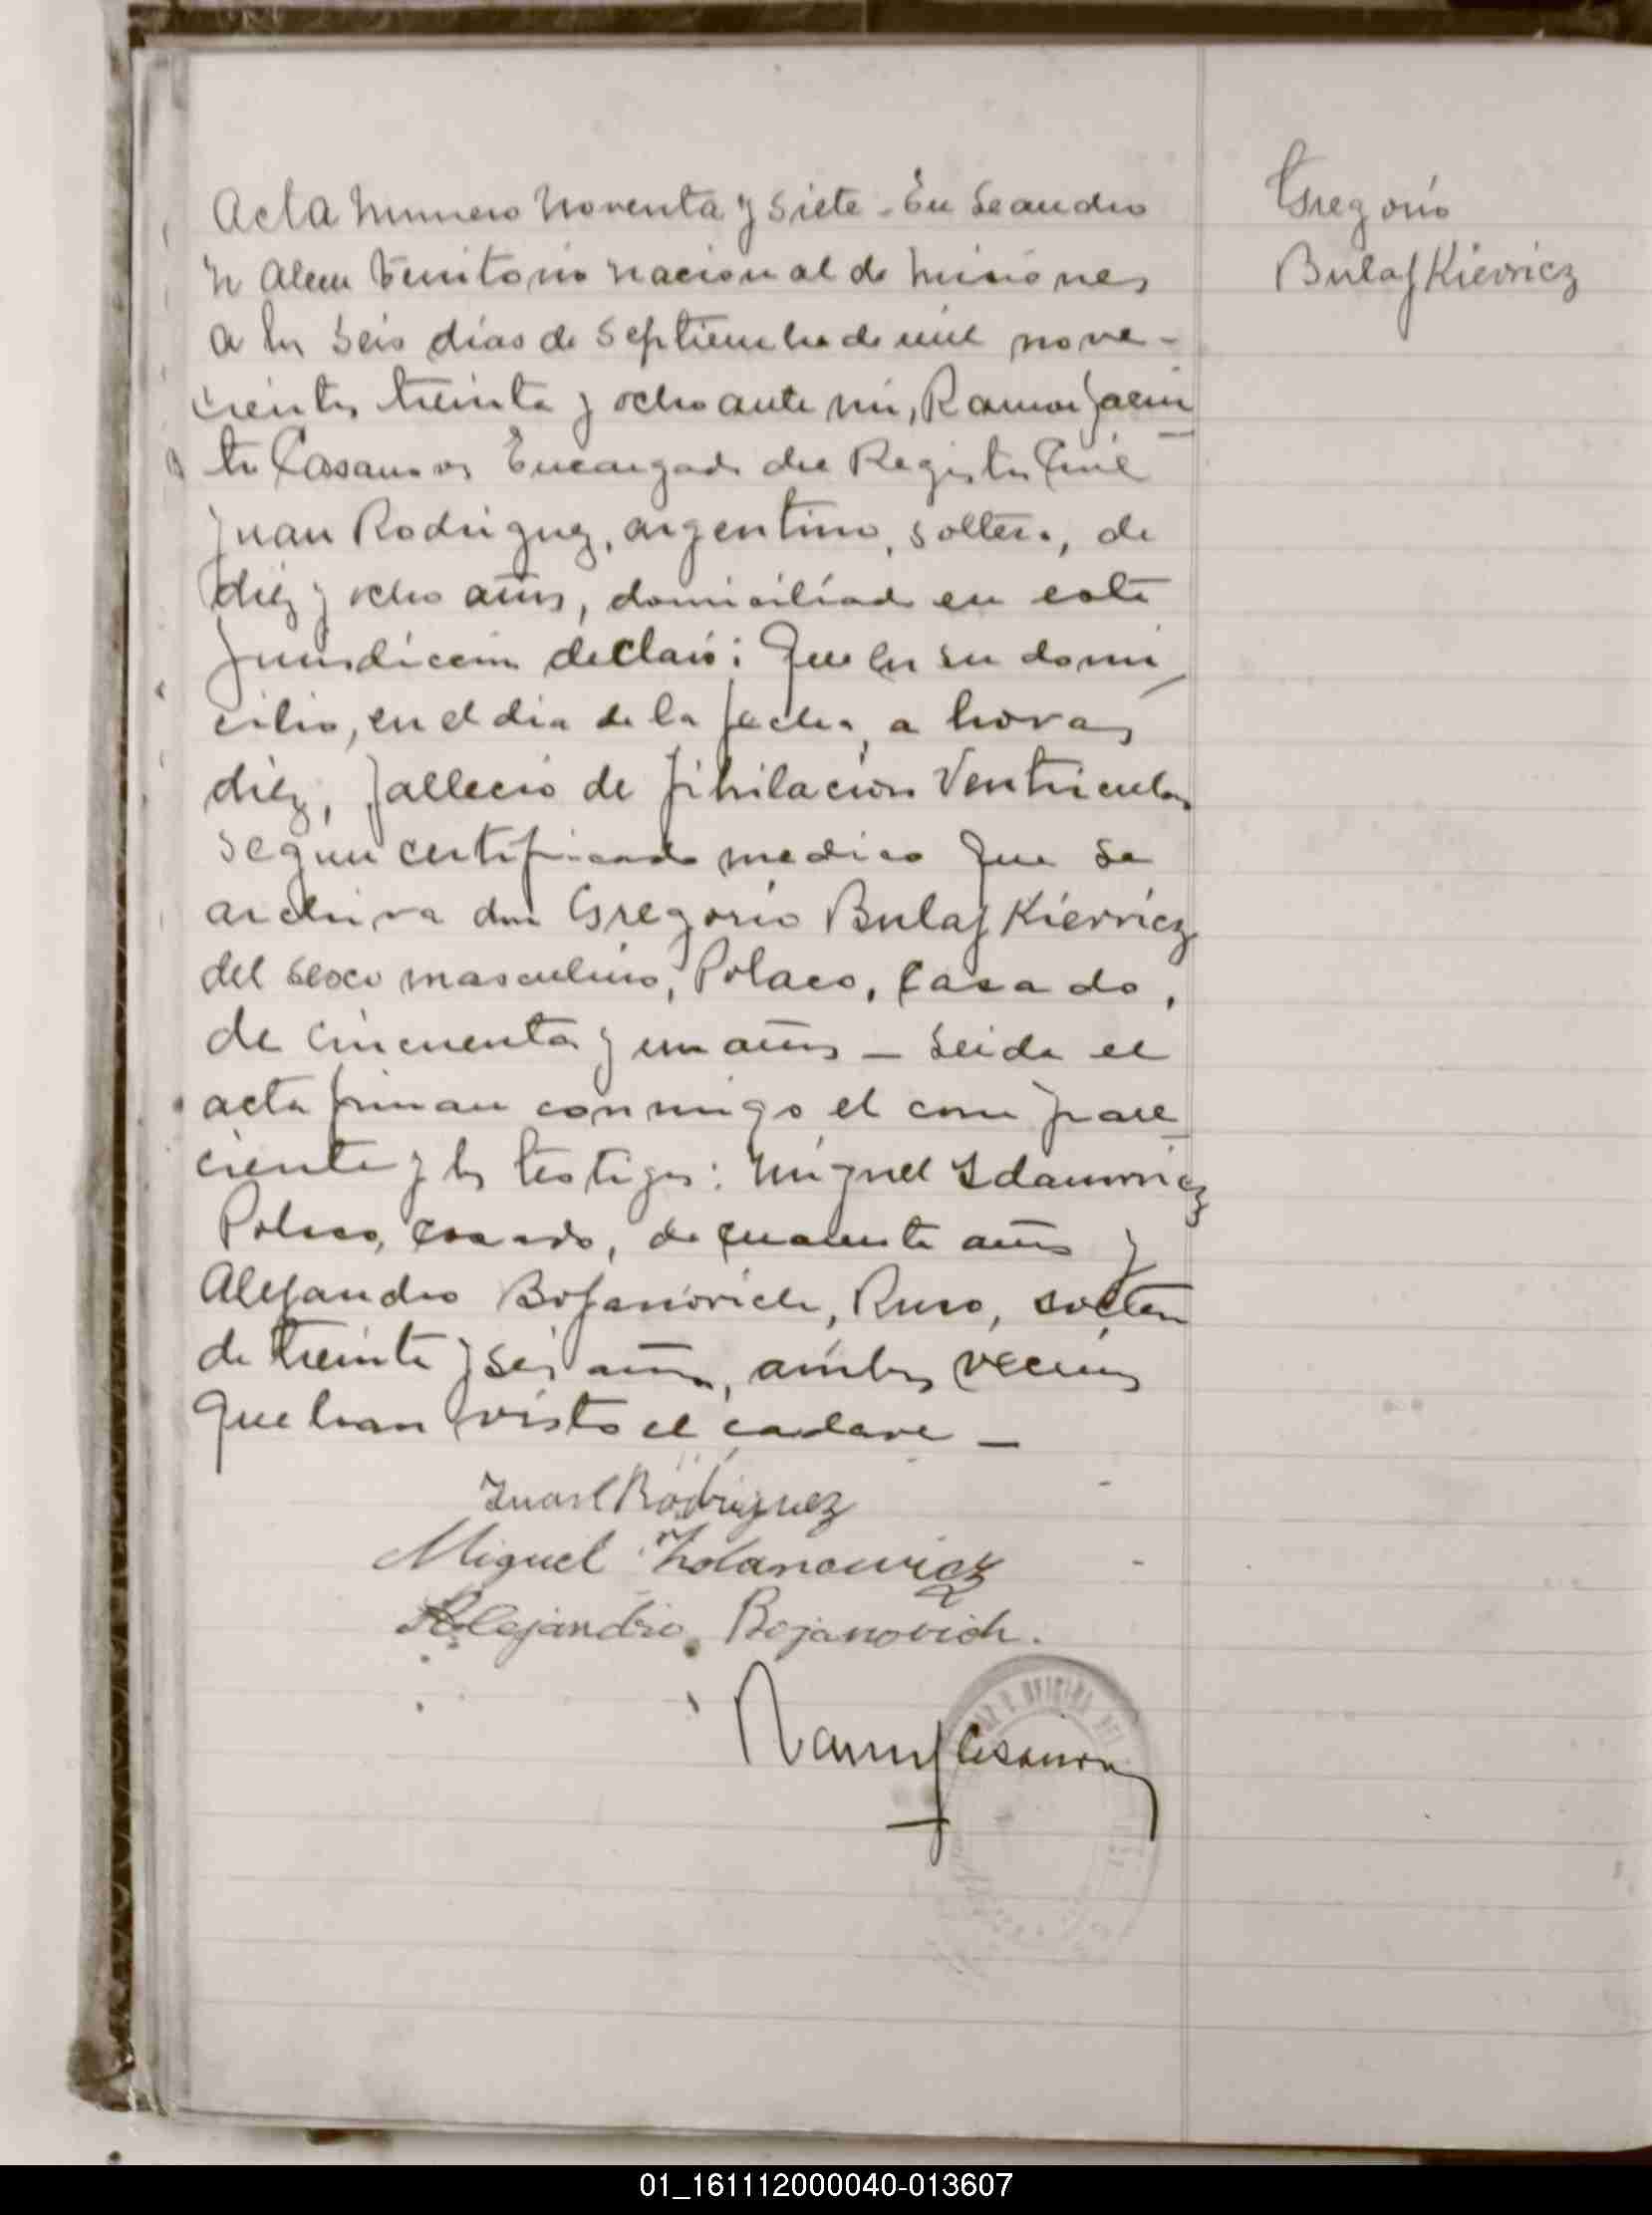 Acta numero noventa y siete - En Leandro
N Alem territorio nacional de Misiones
a los seis dias de septiembre de mil nove-
cientos treinta y ocho ante mi, Ramon Jacin
to Casanova Encargado del Registro Civil
Juan Rodriguez, argentino, soltero, de
diez y ocho años, domiciliado en esta
jurisdiccion declaró: Que en su domi
cilio, en el dia de la fecha, a horas
diez, fallecio de fibrilacion Ventricular
segun certificado medico que se
archiva don Gregorio BulajKievricz
del sexo masculino, Polaco, casado,
de cincuenta y un años - Leida el
acta firman conmigo el compare
ciente y los testigos: Miguel Zdanovricz
Polaco, casado, de cuarenta años y
Alejandro Bojanovich, Ruso, soltero
de treinta y seis años, ambos vecinos
que han visto el cadaver -
Juan Rodriguez
Miguel Zdanowicz
Alejandro Bojanovich.
Ramon J Casanova
OFICINA DEL
Gregorio
BulajKievricz
01_161112000040-013607